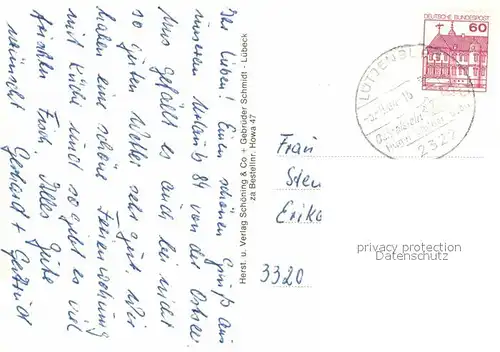 Ihr Lieben! Einen schönen Gruß aus
unserem Urlaub 84 von der Ostsee.
Uns gefällt es auch bei nicht
so guten Wetter sehr gut. Wir
haben eine schöne Ferienwohnung
mit Küche und so gibt es viel
frischen Fisch. Alles Gute
wünscht Gerhard + Gertrud
Herst. u. Verlag Schöning & Co + Gebrüder Schmidt - Lübeck
za Bestellnr: Howa 47
DEUTSCHE BUNDESPOST
60
2322
Frau
Erika
3320
privacy protection
Datenschutz